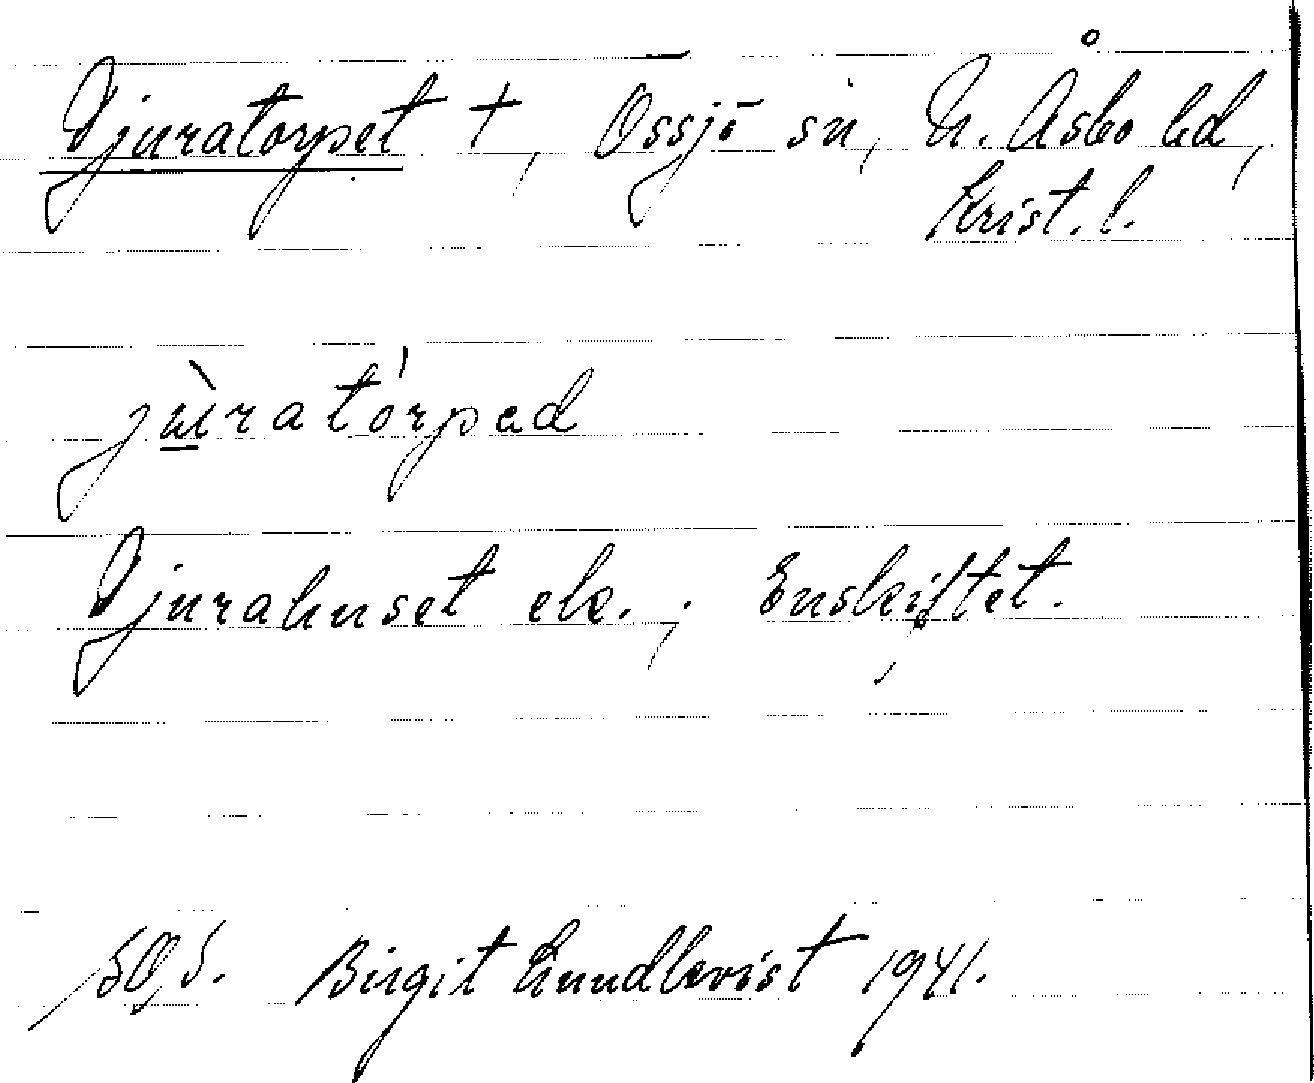 Djuratorpet †, Össjö sn, N. Åsbo hd,
Krist. l.
jùratórpəd
Djurahuset ek.; Enskiftet.
Birgit Lundkvist 1941.